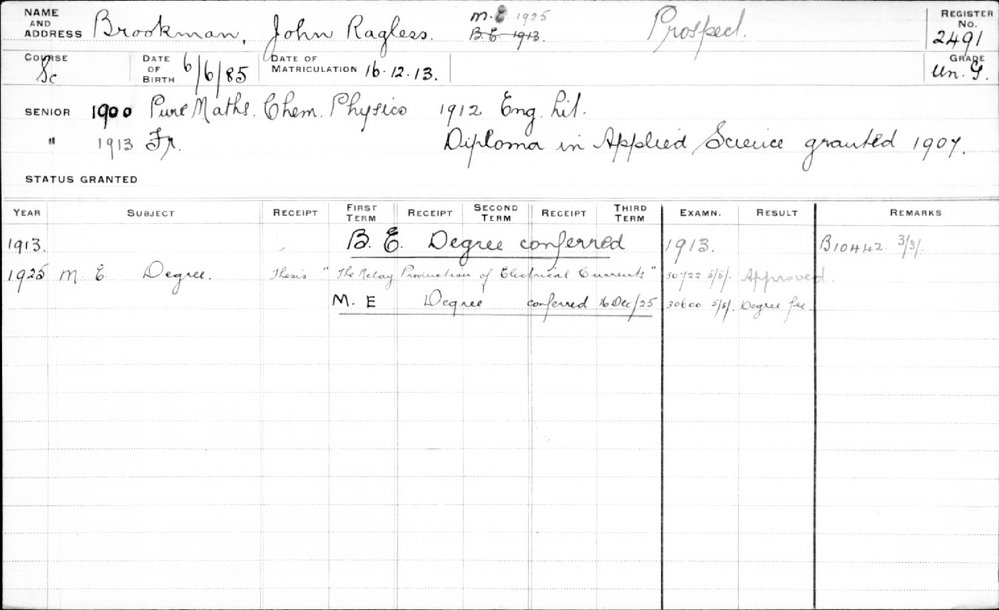 NAME AND ADDRESS Brookman, John Ragless. M.E 1925 B.E 1913. Prospect. REGISTER No. 2491
COURSE Sc DATE OF BIRTH 6/6/85 DATE OF MATRICULATION 16.12.13. GRADE Un. G.
SENIOR 1900 Pure Maths. Chem. Physics 1912 Eng. Lit.
" 1913 Fr. Diploma in Applied Science granted 1907.
STATUS GRANTED
YEAR SUBJECT RECEIPT FIRST TERM RECEIPT SECOND TERM RECEIPT THIRD TERM EXAMN. RESULT REMARKS
1913. B. E. Degree conferred 1913. B10442 3/3/.
1925 M. E Degree. Thesis "The Relay Production of Electrical Currents" 30722 5/5/. Approved.
M. E Degree conferred 16 Dec/25 30600 5/5/. Degree fee.